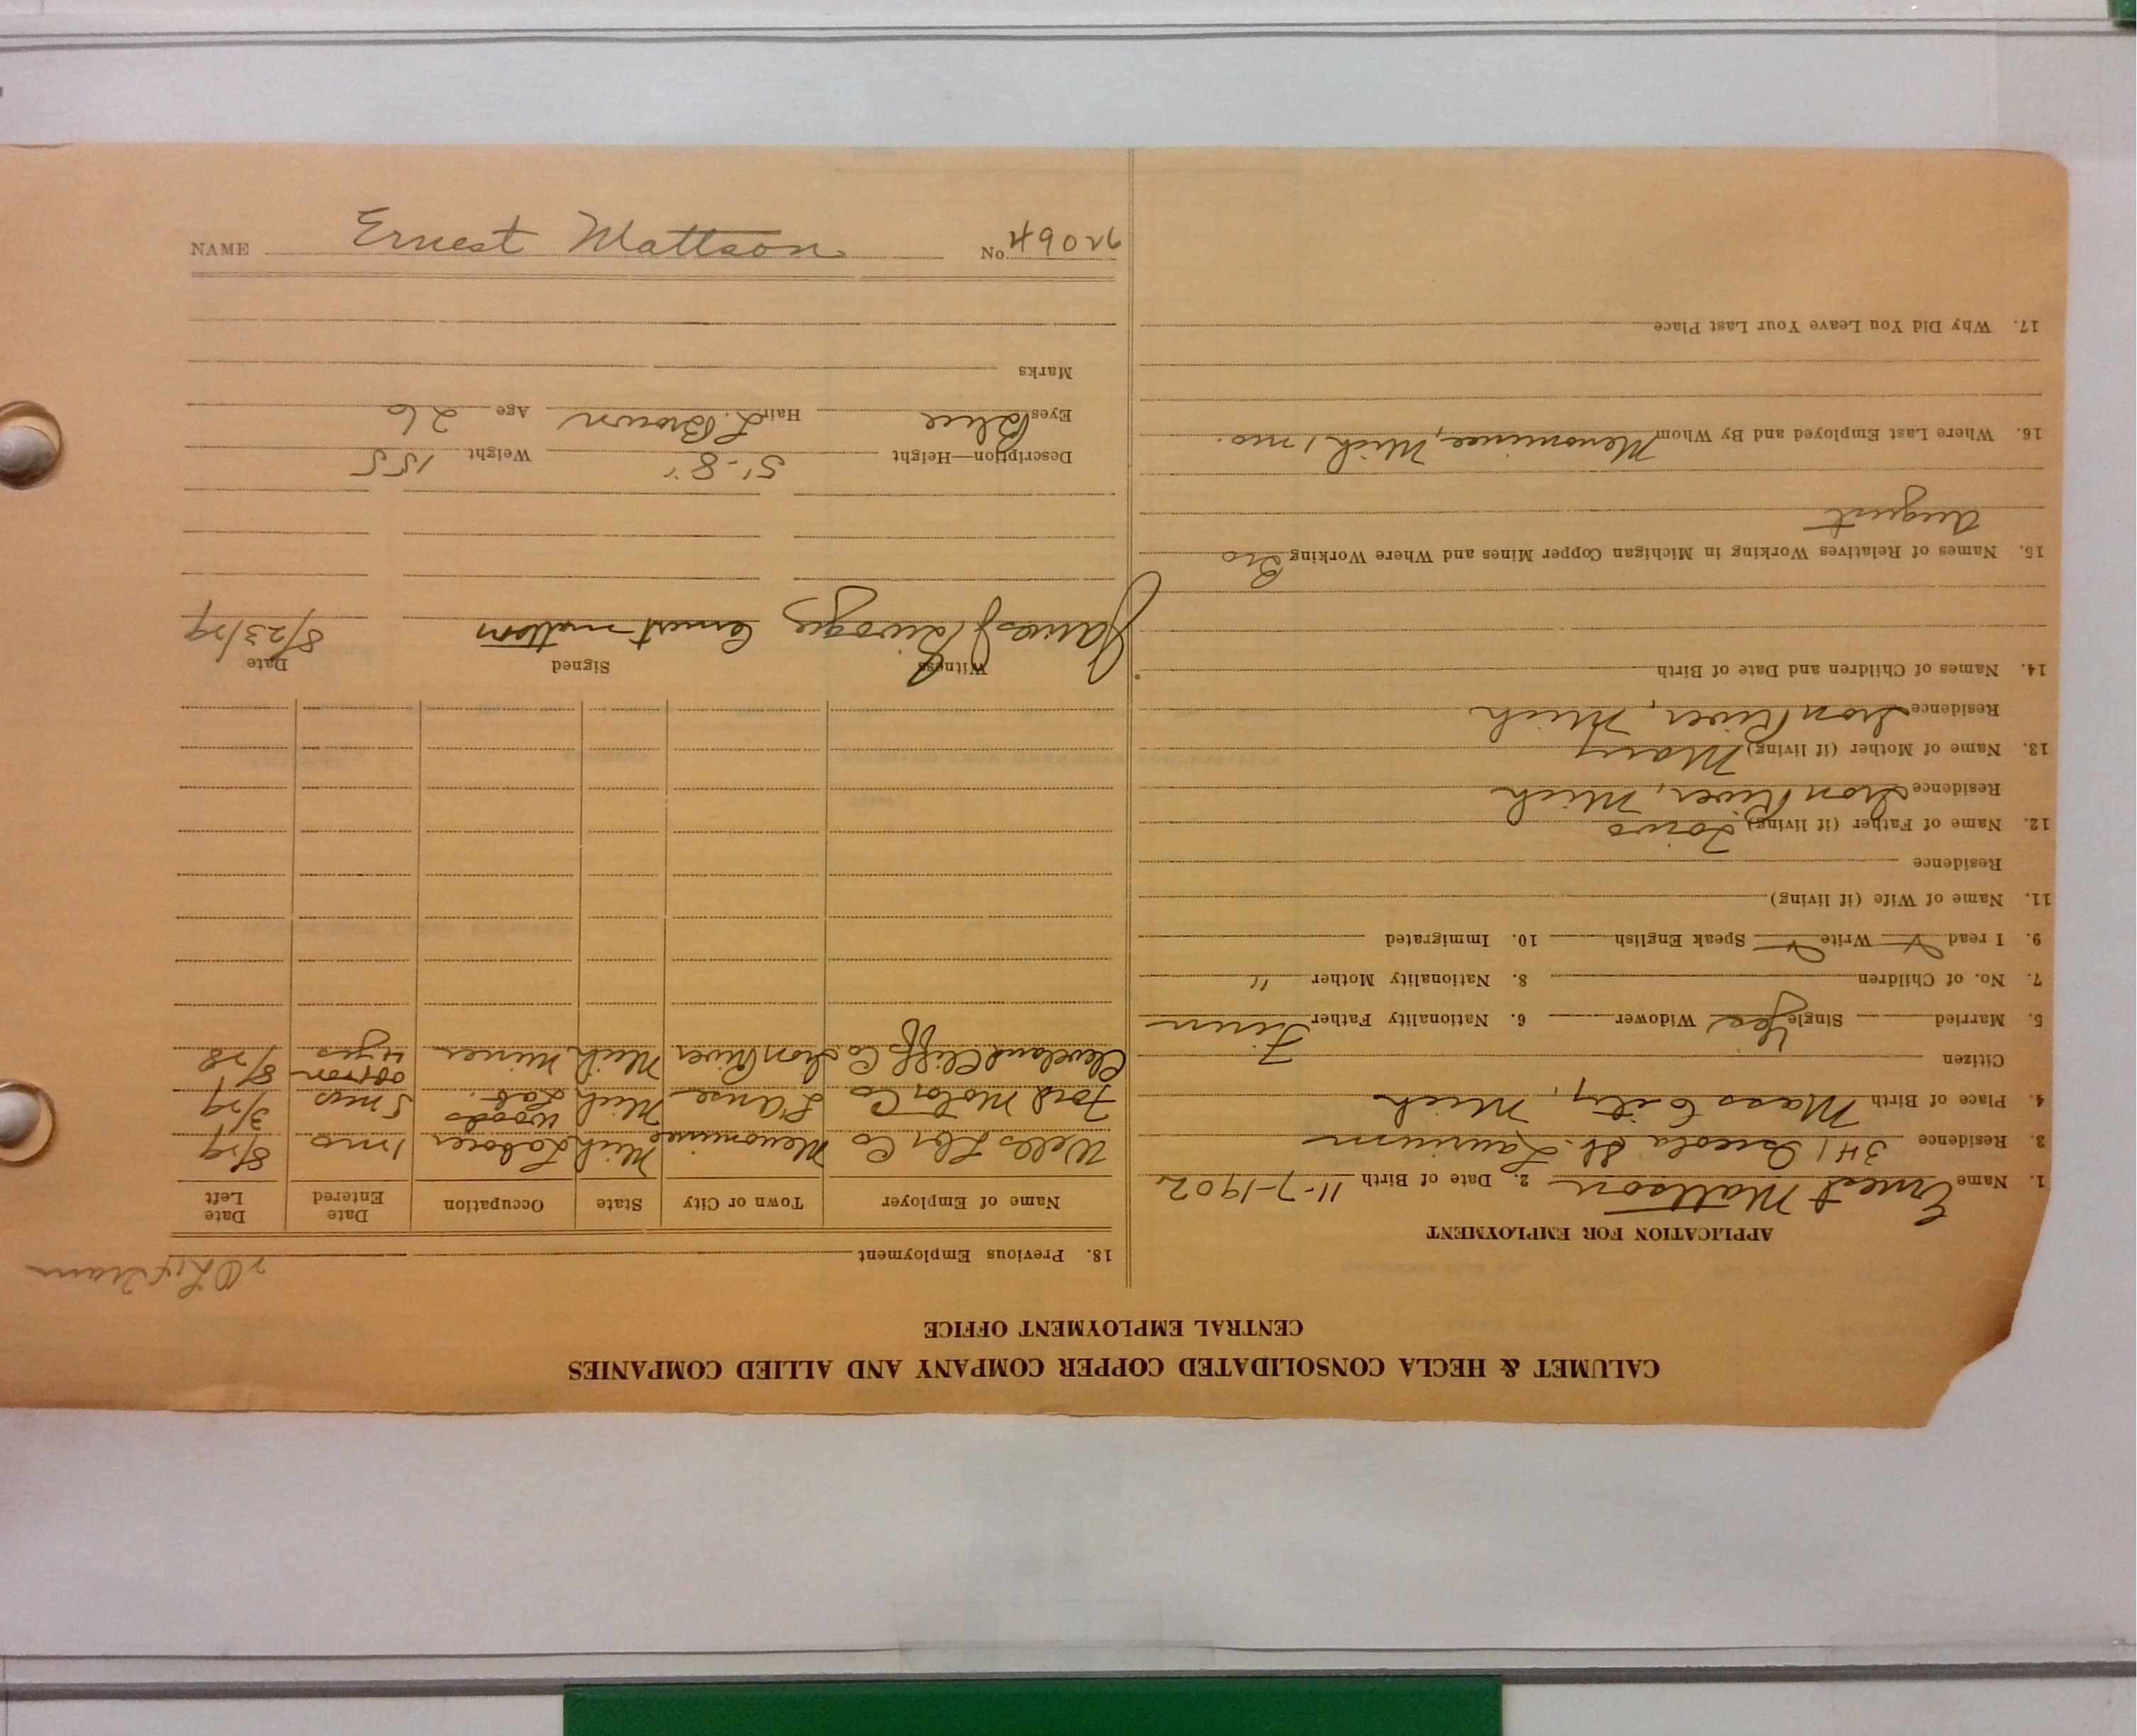 CALUMET & HECLA CONSOLIDATED COPPER COMPANY AND ALLIED COMPANIES
CENTRAL EMPLOYMENT OFFICE
APPLICATION FOR EMPLOYMENT
1. Name Ernest Mattson 2. Date of Birth 11-7-1902
3. Residence 341 Osceola St. Laurium
4. Place of Birth Mass City, Mich
Citizen
5. Married Single Yes Widower 6. Nationality Father Finn
7. No. of Children 8. Nationality Mother "
9. I read ✓ Write ✓ Speak English 10. Immigrated
11. Name of Wife (if living)
Residence
12. Name of Father (if living)
Residence Iron River, Mich
13. Name of Mother (if living) Mary
Residence Iron River, Mich
14. Names of Children and Date of Birth
15. Names of Relatives Working in Michigan Copper Mines and Where Working Bro
August
16. Where Last Employed and By Whom Menominee, Mich 1 mo.
17. Why Did You Leave Your Last Place
18. Previous Employment
Name of Employer Town or City State Occupation Date Entered Date Left
Wells Lbr Co Menominee Mich Laborer 1 mo 8/29
Ford Motor Co L'Anse Mich woods Lab. 5 mos 3/29
Cleveland Cliffs Co Iron River Mich Miner off & on 4 yrs 8/28
Witness Signed Date
James Ernest mattson 8/23/29
Description—Height 5'-8" Weight 155
Eyes Blue Hair L. Brown Age 26
Marks
NAME Ernest Mattson No. 49026